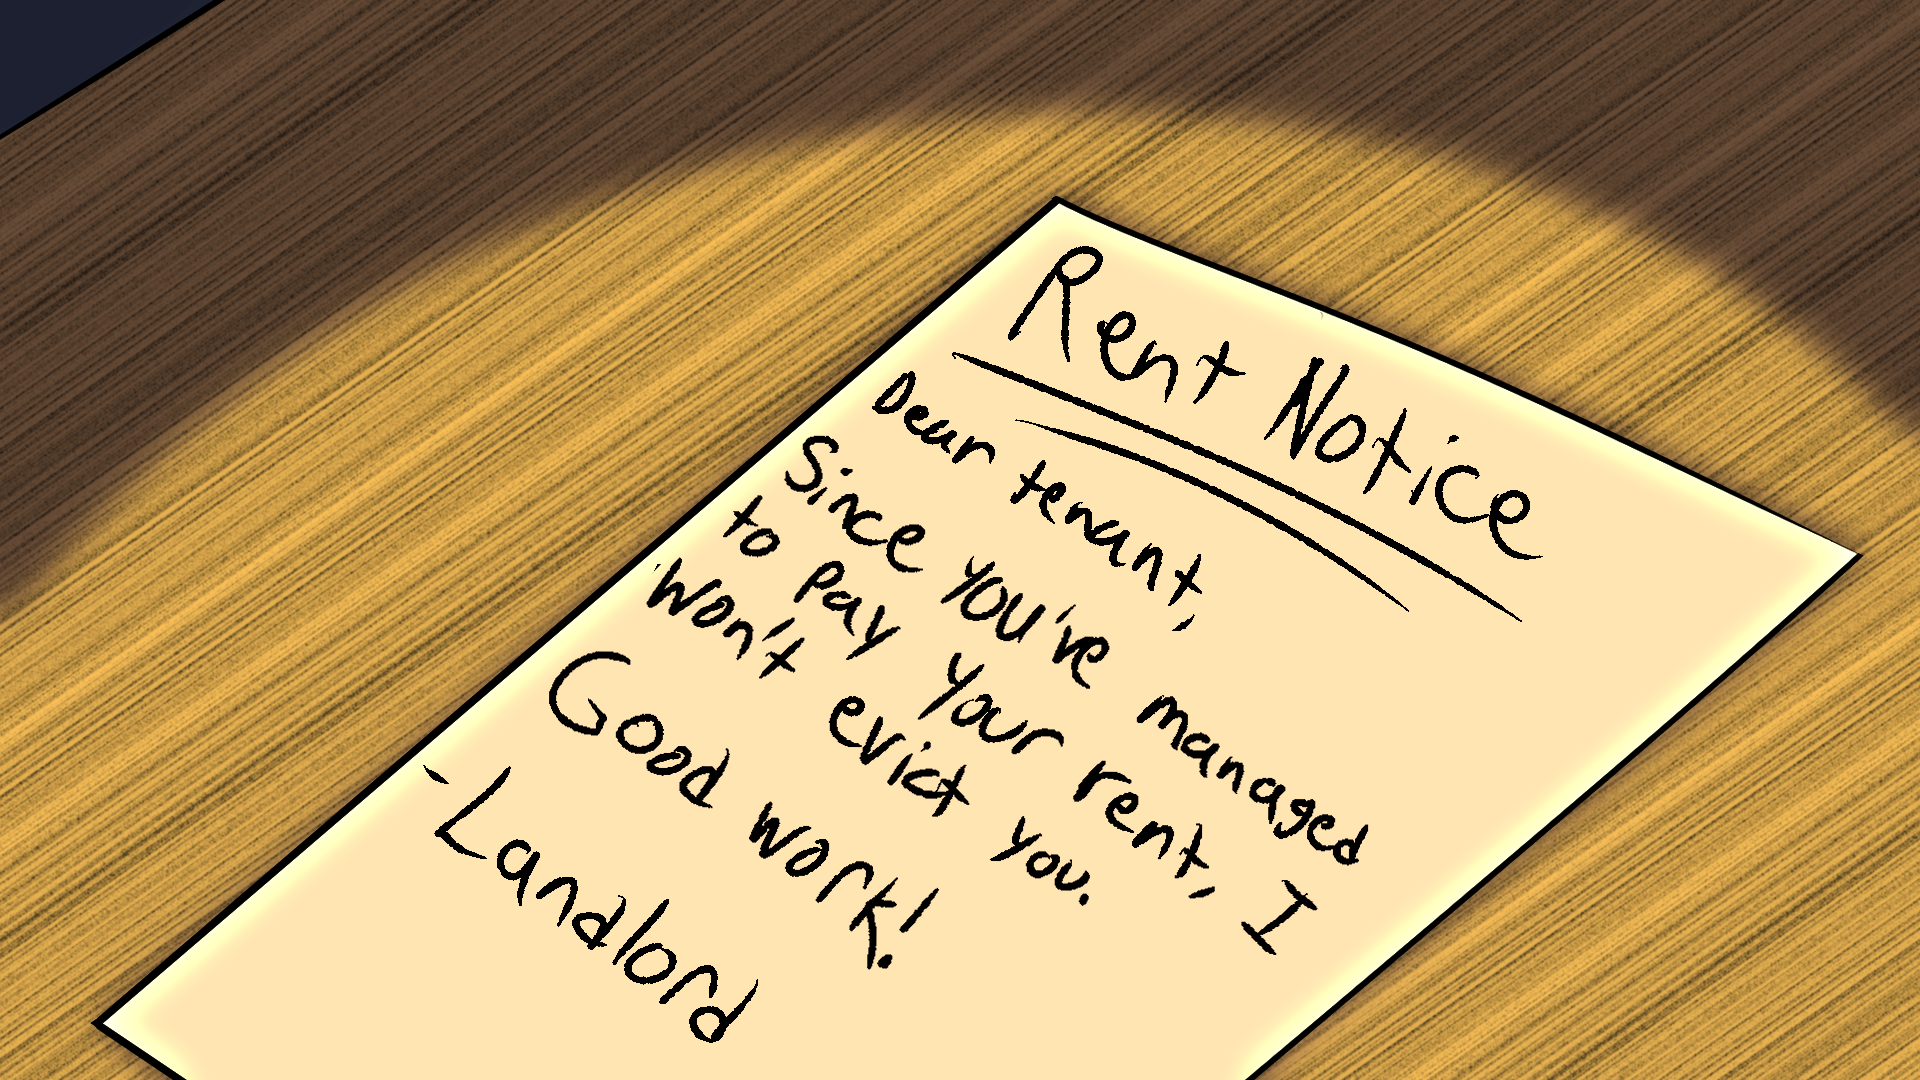 Rent Notice
Dear tenant,
Since you've managed
to pay your rent, I
won't evict you.
Good work!
-Landlord